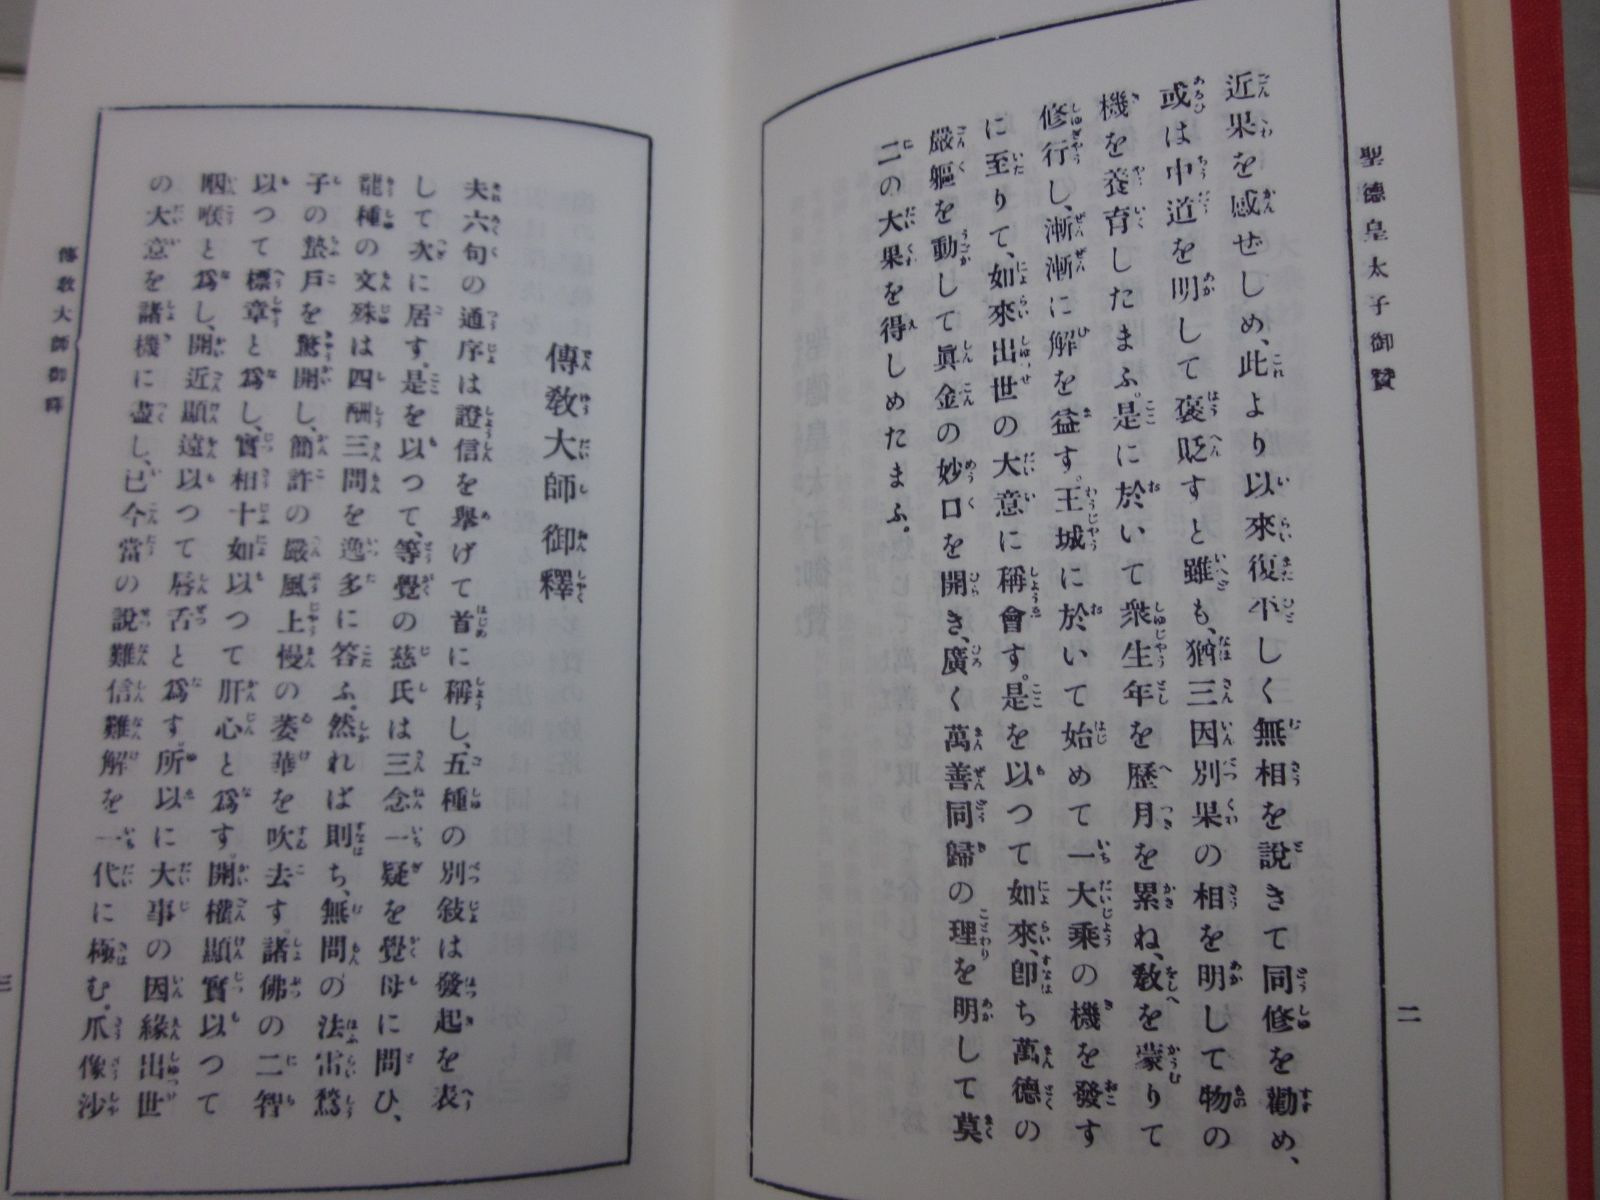 聖德皇太子御贊
二
近果を感ぜしめ、此より以來復平しく無相を說きて同修を勸め、
或は中道を明して褒貶すと雖も、猶三因別果の相を明して物の
機を養育したまふ。是に於いて衆生年を歷月を累ね、敎を蒙りて
修行し、漸漸に解を益す。王城に於いて始めて一大乘の機を發す
に至りて、如來出世の大意に稱會す。是を以つて如來、卽ち萬德の
嚴軀を動して眞金の妙口を開き、廣く萬善同歸の理を明して莫
二の大果を得しめたまふ。
傳敎大師御釋
夫六句の通序は證信を擧げて首に稱し、五種の別敍は發起を表
して次に居す。是を以つて、等覺の慈氏は三念一疑を覺母に問ひ、
龍種の文殊は四酬三問を逸多に答ふ。然れば則ち、無問の法雷鶖
子の蟄戶を驚開し、簡許の嚴風上慢の萎華を吹去す。諸佛の二智
以つて標章と爲し、實相十如以つて肝心と爲す。開權顯實以つて
咽喉と爲し、開近顯遠以つて唇舌と爲す。所以に大事の因緣出世
の大意を諸機に盡し、已今當の說難信難解を一代に極む。爪像沙
傳敎大師御釋
三